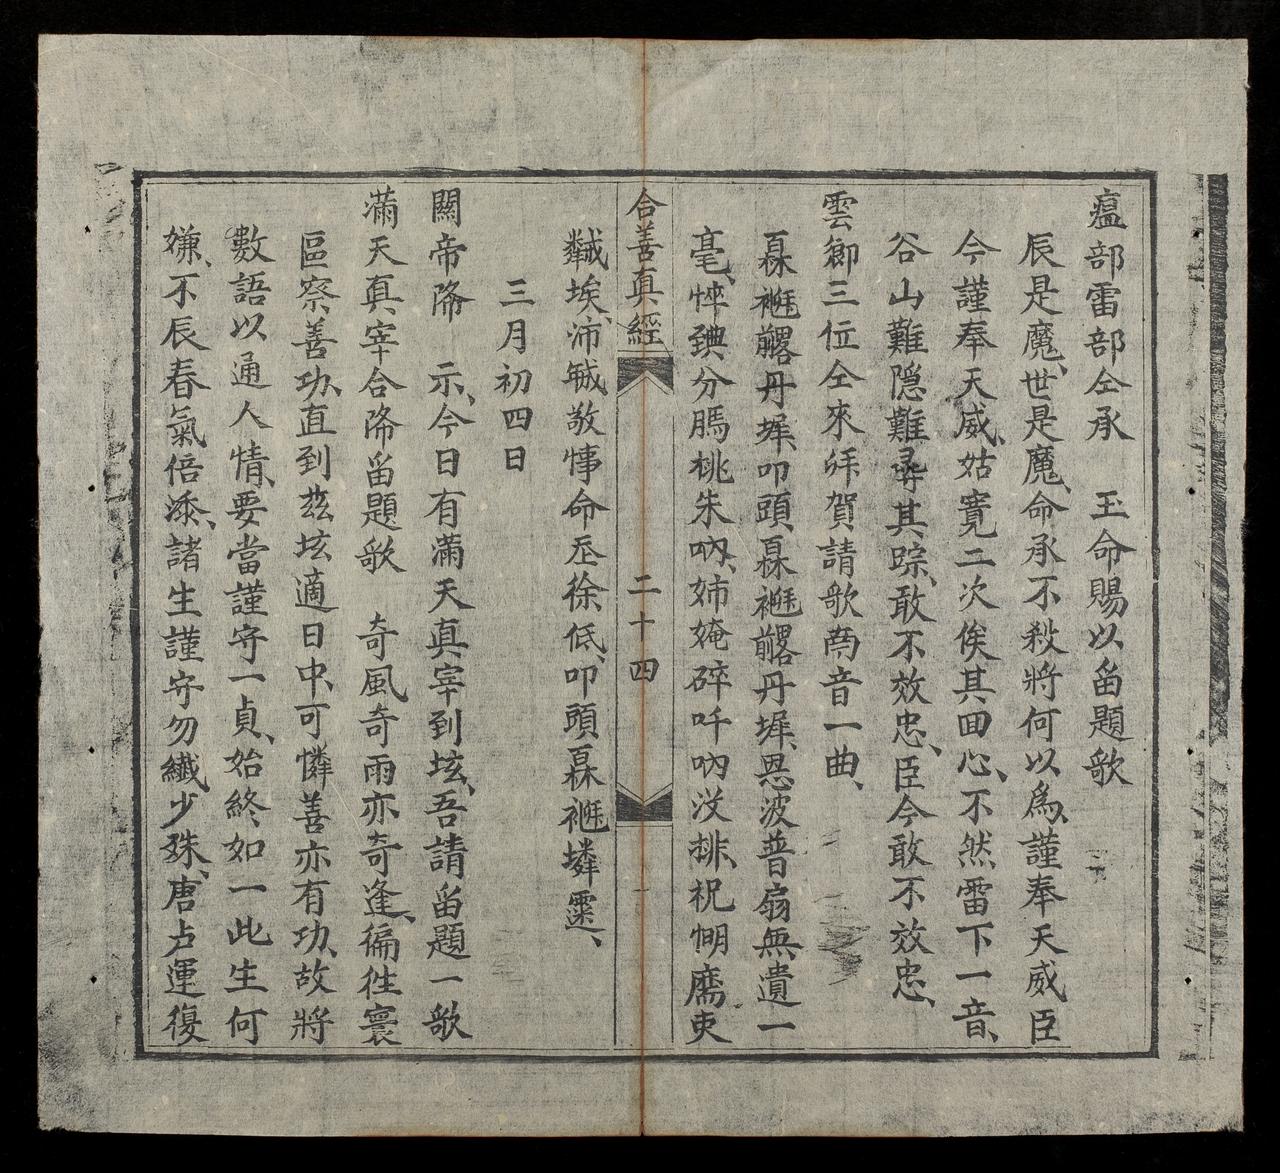 瘟部雷部仝承　玉命賜以畱題歌
辰是魔、世是魔、命承不殺將何以爲、謹奉天威臣
今謹奉天威、姑寬二次俟其回心、不然雷下一音、
谷山難隱難尋其踪、敢不效忠、臣今敢不效忠、
雲鄉三位仝來拜賀請歌喃音一曲、
丹墀、叩頭丹墀、恩波普扇無遺一
毫、悴錪分腡桃朱吶、姉媕碎吀吶汥排、祝憪廌吏
埃、沛敬事命丕徐低、叩頭
三月初四日
關帝降　示、今日有滿天真宰到坛、吾請畱題一歌
滿天真宰合降畱題歌　奇風奇雨亦奇逢、徧徃寰
區察善功、直到茲坛適日中、可憐善亦有功、故將
數語以通人情、要當謹守一貞、始終如一此生何
嫌、不辰春氣倍添、諸生謹守勿纖少殊、唐卢運復
合善真經　二十四